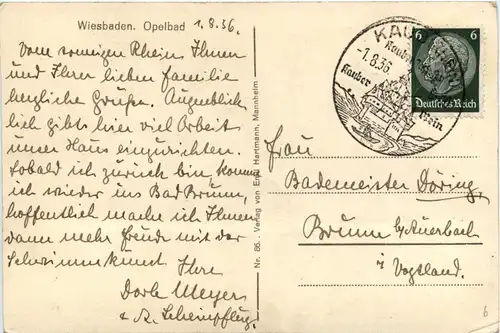 Wiesbaden. Opelbad 1.8.36.
Vom sonnigen Rhein Ihnen
und Ihrer lieben Familie
herzliche Grüße. Augenblick-
lich gibts hier viel Arbeit
unser Haus einzurichten.
Sobald ich zurück bin, komme
ich wieder ins Bad Brunn,
hoffentlich mache ich Ihnen
dann mehr Freude mit der
Schwimmkunst Ihre
Dorle Meyer
Nr. 86. - Verlag von Hartmann, Mannheim
KAUB
-1.8.36
Kauber
Wein
6 6
Deutsches Reich
Frau
Bademeister Döring
Brunn b/Auerbach
i/Vogtland.
6